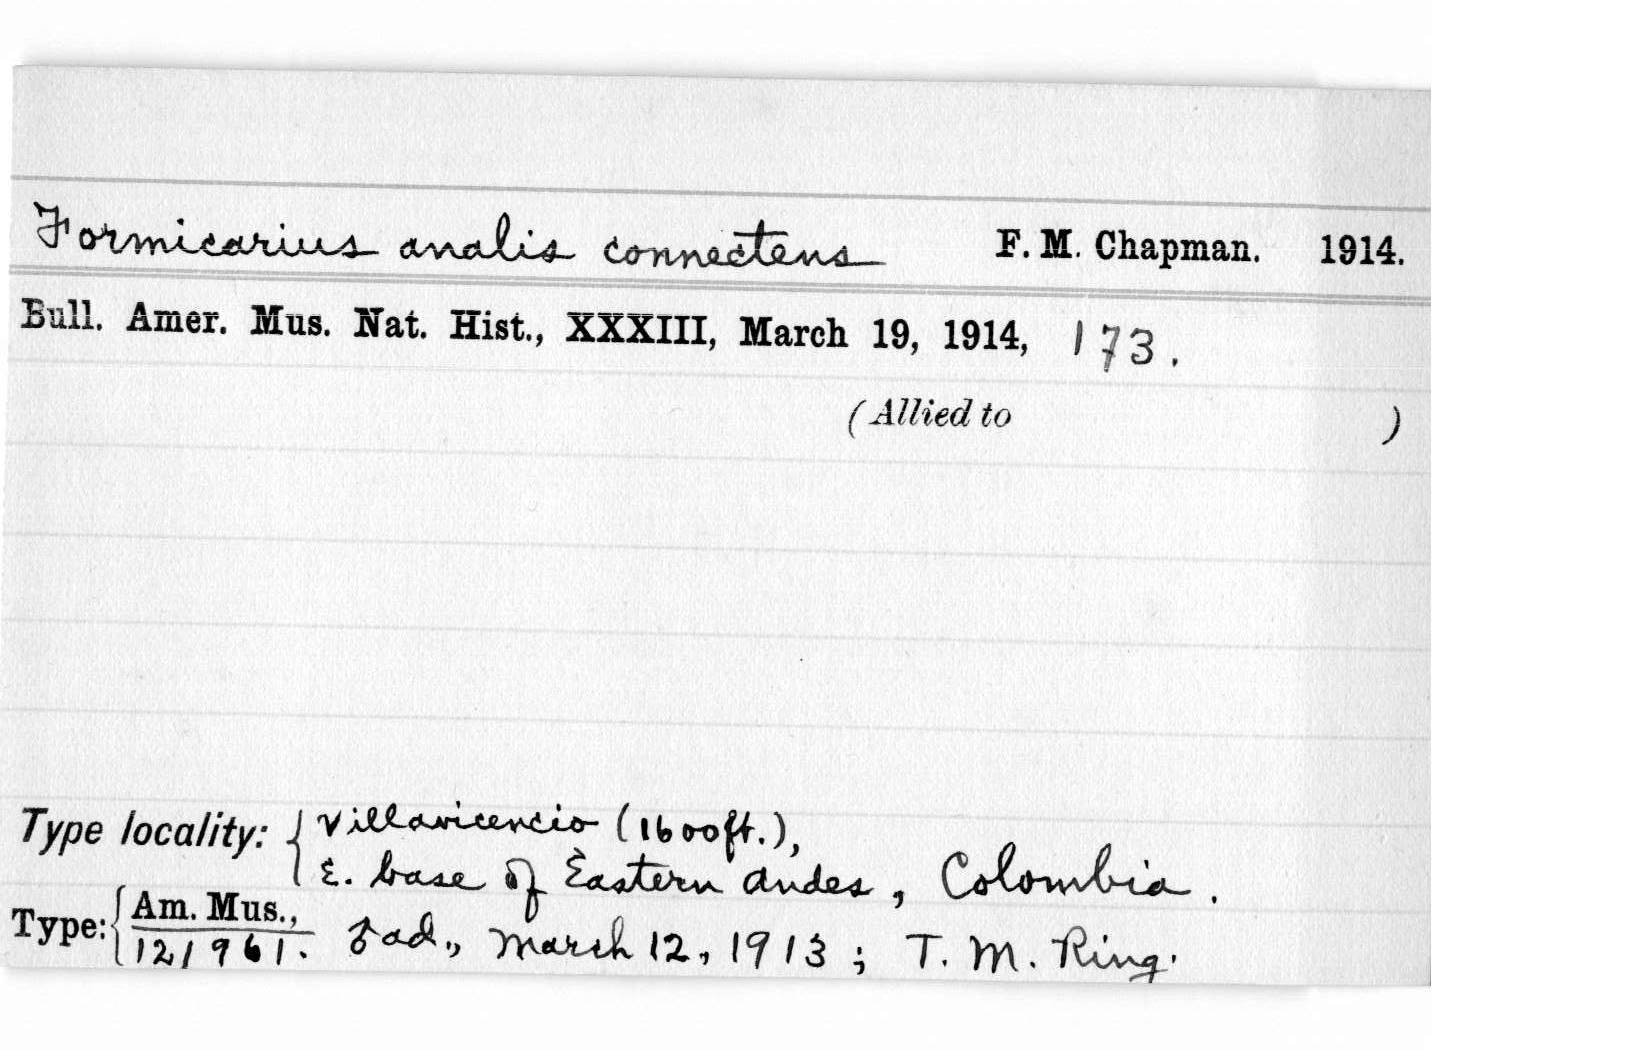 Formicarius analis connectens F. M. Chapman. 1914.
Bull. Amer. Mus. Nat. Hist., XXXIII, March 19, 1914, 173.
(Allied to )
Type locality: { Villavicencio (1600ft.),
E. base of Eastern Andes, Colombia.
Type: { Am. Mus.,
121961. ♂ad., March 12, 1913; T. M. Ring.